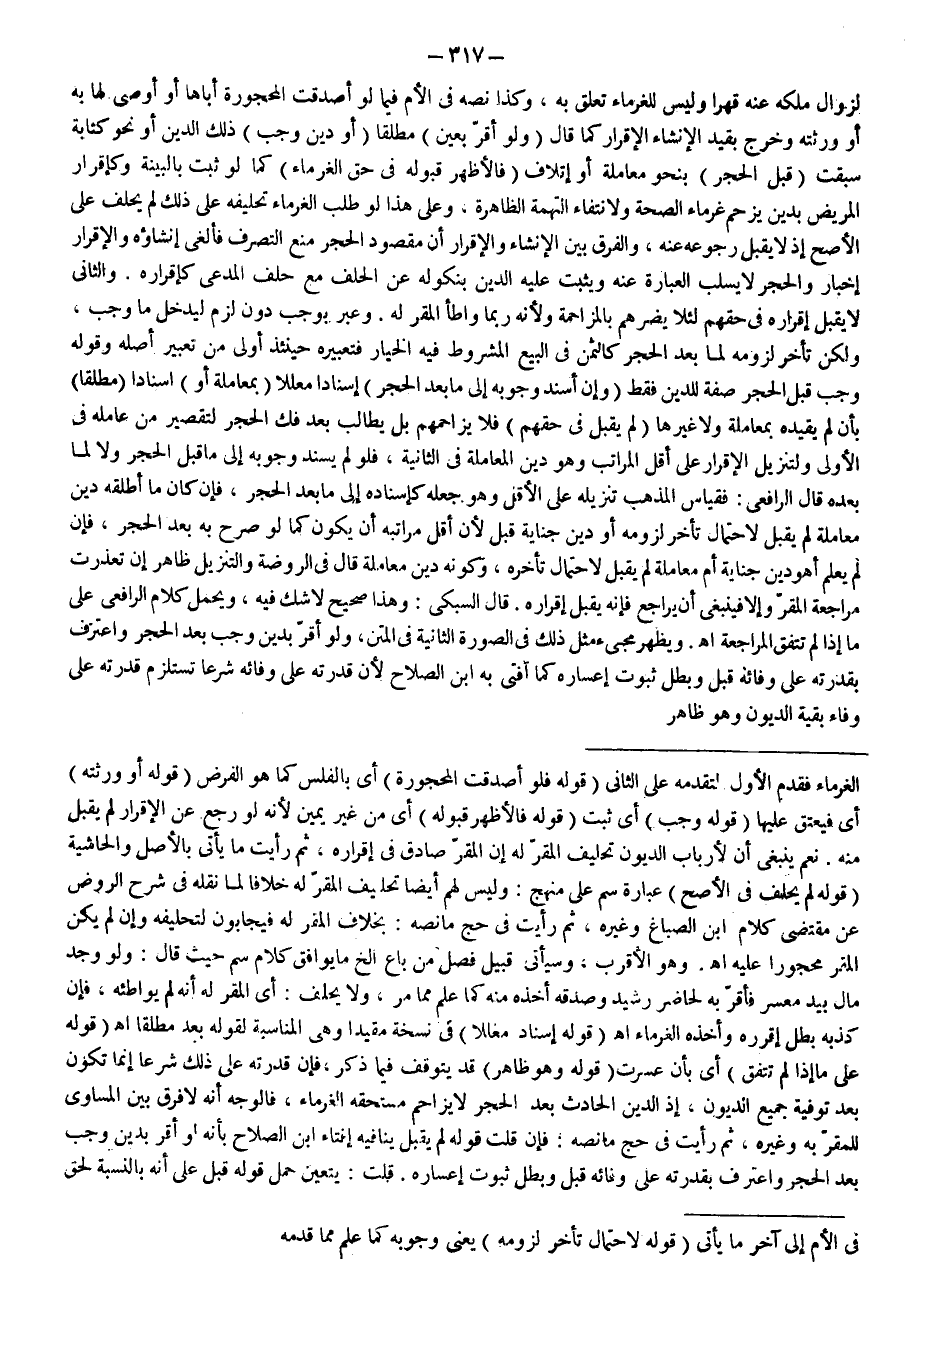 – ٣١٧ –
لزوال ملكه عنه قهرا وليس للغرماء تعلق به ، وكذا نصه فى الأم فيما لو أصدقت المحجورة أباها أو أوصى لها به
أو ورثته وخرج بقيد الإنشاء الإقرار كما قال ( ولو أقرّ بعين ) مطلقا ( أو دين وجب ) ذلك الدين أو نحو كتابة
سبقت ( قبل الحجر ) بنحو معاملة أو إتلاف ( فالأظهر قبوله فى حق الغرماء ) كما لو ثبت بالبينة وكإقرار
المريض بدين يزحم غرماء الصحة ولانتفاء التهمة الظاهرة ، وعلى هذا لو طلب الغرماء تحليفه على ذلك لم يحلف على
الأصح إذ لايقبل رجوعه عنه ، والفرق بين الإنشاء والإقرار أن مقصود الحجر منع التصرف فألغى إنشاؤه والإقرار
إخبار والحجر لايسلب العبارة عنه ويثبت عليه الدين بنكوله عن الحلف مع حلف المدعى كإقراره . والثانى
لايقبل إقراره فى حقهم لئلا يضرهم بالمزاحمة ولأنه ربما واطأ المقر له . وعبر بوجب دون لزم ليدخل ما وجب ،
ولكن تأخر لزومه لما بعد الحجر كالثمن فى البيع المشروط فيه الخيار فتعبيره حينئذ أولى من تعبير أصله وقوله
وجب قبل الحجر صفة للدين فقط ( وإن أسند وجوبه إلى مابعد الحجر ) إسنادا معللا ( بمعاملة أو ) اسنادا (مطلقا)
بأن لم يقيده بمعاملة ولاغيرها ( لم يقبل فى حقهم ) فلا يزاحمهم بل يطالب بعد فك الحجر لتقصير من عامله فى
الأولى ولتنزيل الإقرار على أقل المراتب وهو دين المعاملة فى الثانية ، فلو لم يسند وجوبه إلى ماقبل الحجر ولا لما
بعده قال الرافعى : فقياس المذهب تنزيله على الأقل وهو جعله كإسناده إلى مابعد الحجر ، فإن كان ما أطلقه دين
معاملة لم يقبل لاحتمال تأخر لزومه أو دين جناية قبل لأن أقل مراتبه أن يكون كما لو صرح به بعد الحجر ، فإن
لم يعلم أهودين جناية أم معاملة لم يقبل لاحتمال تأخره ، وكونه دين معاملة قال فى الروضة والتنزيل ظاهر إن تعذرت
مراجعة المقرّ وإلا فينبغى أن يراجع فإنه يقبل إقراره . قال السبكى : وهذا صحيح لاشك فيه ، ويحمل كلام الرافعى على
ما إذا لم تتفق المراجعة اهـ . ويظهر مجىء مثل ذلك فى الصورة الثانية فى المتن، ولو أقرّ بدين وجب بعد الحجر واعترف
بقدرته على وفائه قبل وبطل ثبوت إعساره كما أفتى به ابن الصلاح لأن قدرته على وفائه شرعا تستلزم قدرته على
وفاء بقية الديون وهو ظاهر
الغرماء فقدم الأول لتقدمه على الثانى ( قوله فلو أصدقت المحجورة ) أى بالفلس كما هو الفرض ( قوله أو ورثته )
أى فيعتق عليها ( قوله وجب ) أى ثبت ( قوله فالأظهر قبوله ) أى من غير يمين لأنه لو رجع عن الإقرار لم يقبل
منه . نعم ينبغى أن لأرباب الديون تحليف المقرّ له إن المقرّ صادق فى إقراره ، ثم رأيت ما يأتى بالأصل والحاشية
( قوله لم يحلف فى الأصح ) عبارة سم على منهج : وليس لهم أيضا تحليف المقرّ له خلافا لما نقله فى شرح الروض
عن مقتضى كلام ابن الصباغ وغيره ، ثم رأيت فى حج مانصه : بخلاف المقر له فيجابون لتحليفه وإن لم يكن
المقر محجورا عليه اهـ . وهو الأقرب ، وسيأتى قبيل فصل من باع الخ مايوافق كلام سم حيث قال : ولو وجد
مال بيد معسر فأقرّ به لحاضر رشيد وصدقه أخذه منه كما علم مما مر ، ولا يحلف : أى المقر له أنه لم يواطئه ، فإن
كذبه بطل إقرره وأخذه الغرماء اهـ ( قوله إسناد معللا ) فى نسخة مقيدا وهى المناسبة لقوله بعد مطلقا اهـ ( قوله
على ماإذا لم تتفق ) أى بأن عسرت ( قوله وهو ظاهر) قد يتوقف فيما ذكر ،فإن قدرته على ذلك شرعا إنما تكون
بعد توفية جميع الديون ، إذ الدين الحادث بعد الحجر لايزاحم مستحقه الغرماء ، فالوجه أنه لافرق بين المساوى
للمقرّ به وغيره ، ثم رأيت فى حج مانصه : فإن قلت قوله لم يقبل ينافيه إفتاء ابن الصلاح بأنه لو أقر بدين وجب
بعد الحجر واعترف بقدرته على وفائه قبل وبطل ثبوت إعساره . قلت : يتعين حمل قوله قبل على أنه بالنسبة لحق
فى الأم إلى آخر ما يأتى ( قوله لاحتمال تأخر لزومه ) يعنى وجوبه كما علم مما قدمه